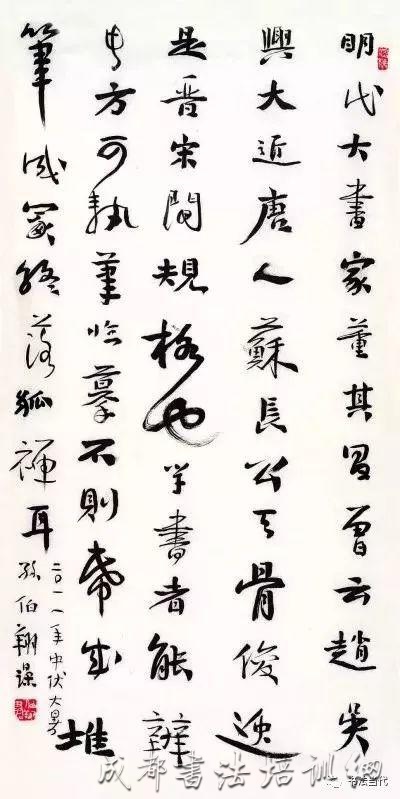 明代大書家董其昌曾云趙吳
興大近唐人蘇長公天骨俊逸
是晉宋間規格也学書者能辨
此方可執筆临摹不則帋成堆
筆成冢終落狐禪耳
二〇一一年中伏大暑
孫伯翔課
成都書法培訓網
书法当代